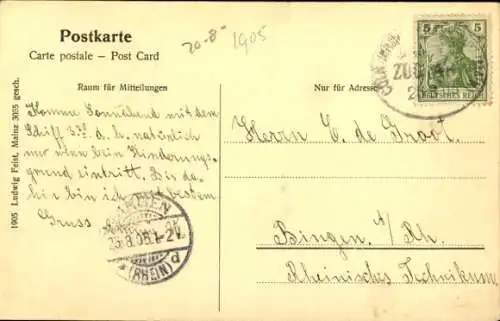 Postkarte
Carte postale – Post Card
20-8-1905
Raum für Mitteilungen
Nur für Adresse
5 5
DEUTSCHES REICH
Komme Sonnabend mit dem
Schiff 3 d. h. natürlich
nur wenn kein Hinderungs-
grund eintritt. Bis da-
hin bin ich mit bestem
Gruss
Herrn C. de Groot.
Bingen a/Rh.
Rheinisches Technikum.
BINGEN
23.8.05.1-2V.
* (RHEIN) d
1905 Ludwig Feist, Mainz 3055 gesch.